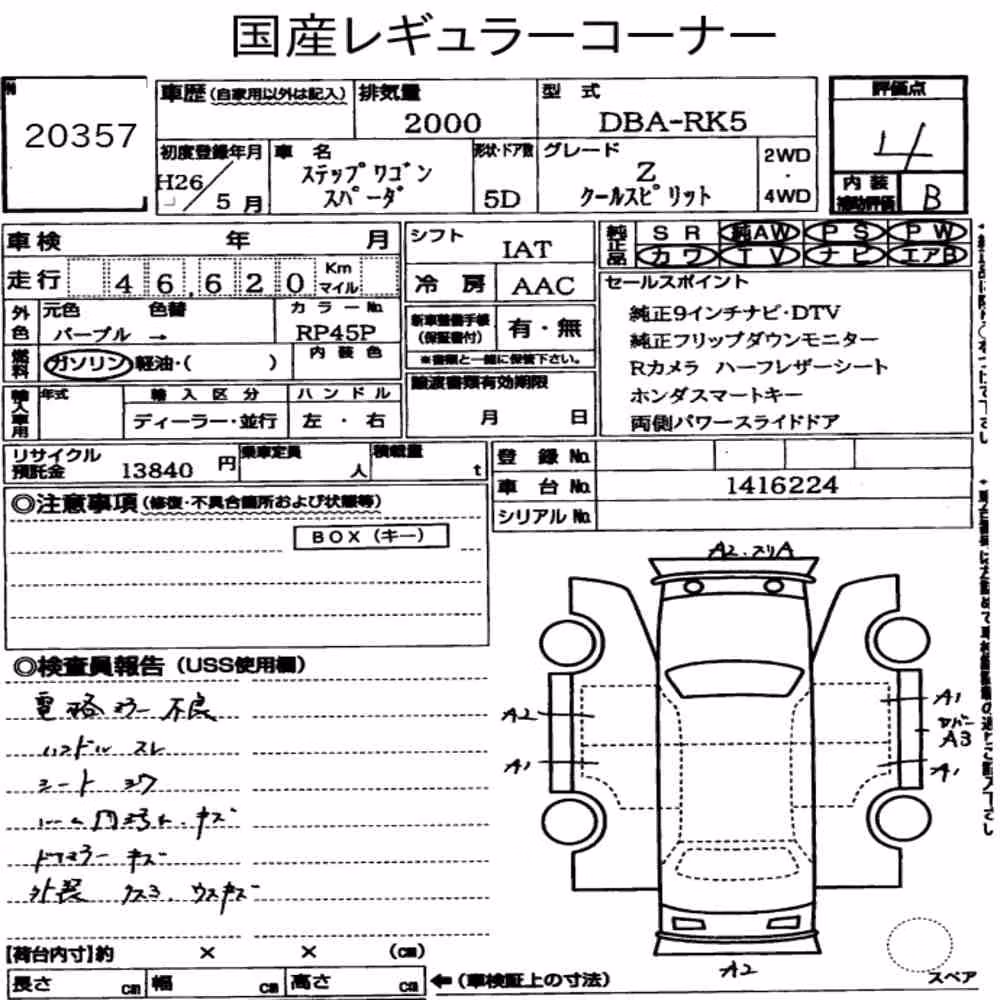 国産レギュラーコーナー
20357
車歴(自家用以外は記入)
排気量
2000
型 式
DBA-RK5
評価点
4
初度登録年月
H26/5月
車 名
ステップワゴン
スパーダ
形状・ドア数
5D
グレード
Z
クールスピリット
2WD
・
4WD
内 装
補助評価
B
車検 年 月
走行 46,620 Km
マイル
シフト
IAT
冷 房
AAC
純正品
SR 純AW PS PW
カワ TV ナビ エアB
外色
元色 色替
パープル →
カラーNo.
RP45P
燃料
ガソリン・軽油・( )
内装色
新車整備手帳
(保証書付)
有・無
※書類と一緒に保管下さい。
セールスポイント
純正9インチナビ・DTV
純正フリップダウンモニター
Rカメラ ハーフレザーシート
ホンダスマートキー
両側パワースライドドア
輸入車用
年式
輸入区分
ディーラー・並行
ハンドル
左・右
譲渡書類有効期限
月 日
リサイクル
預託金 13840 円
乗車定員
人
積載量
t
登録No.
車台No. 1416224
シリアルNo.
◎注意事項(修復・不具合箇所および状態等)
BOX(キー)
◎検査員報告(USS使用欄)
電格ミラー不良
ハンドル スレ
シート シワ
ドアミラー キズ
A2.スリA
A2
A1
A1
カバー
A3
A1
A2
スペア
【荷台内寸】約 × × (cm)
長さ cm 幅 cm 高さ cm ←(車検証上の寸法)